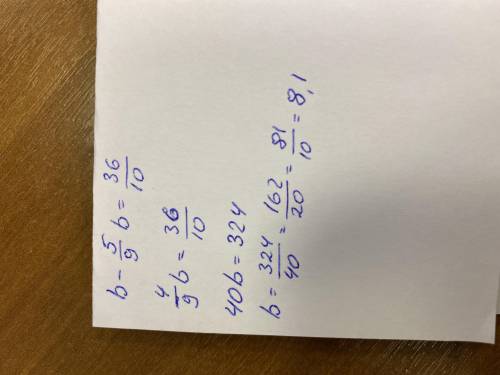 b - 5/9 b = 36/10
4/9 b = 36/10
40b = 324
b = 324/40 = 162/20 = 81/10 = 8,1